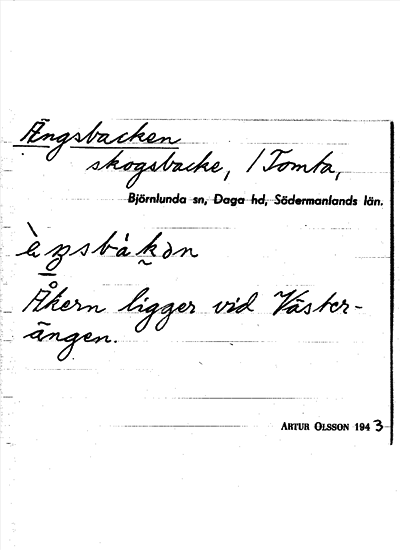 Ängsbacken
skogsbacke, /Tomta,
Björnlunda sn, Daga hd, Södermanlands län.
Åkern ligger vid Väster-
ängen.
ARTUR OLSSON 1943